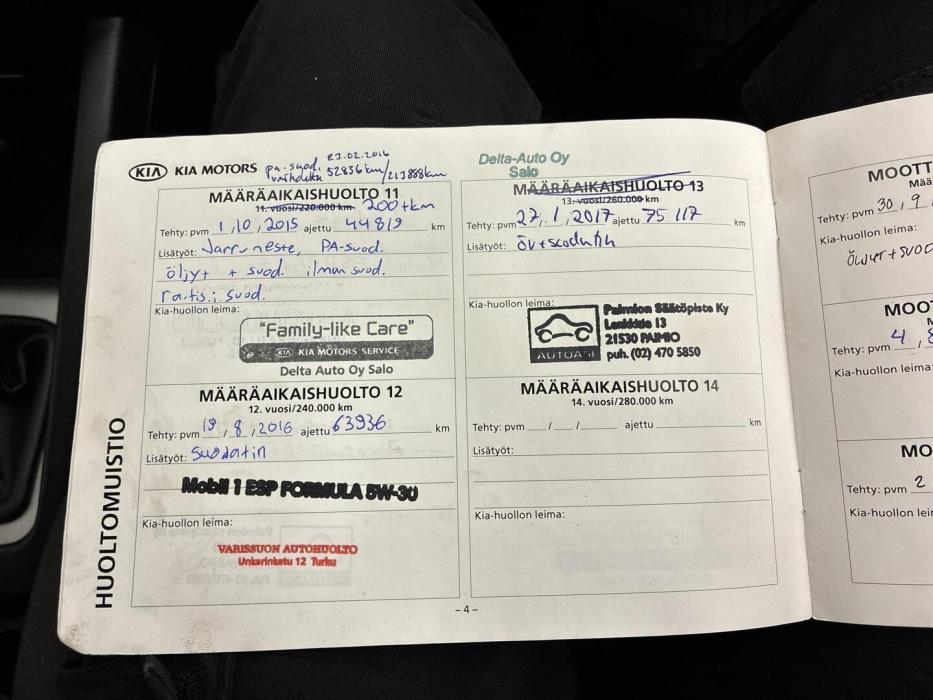 KIA KIA MOTORS
pa-suod. 23.02.2016
vaihdettu 52836km/213888km
MÄÄRÄAIKAISHUOLTO 11
11. vuosi/220.000 km 200+km
Tehty: pvm 1,10,2015 ajettu 44819 km
Lisätyöt: Jarruneste, PA-suod.
öljyt + suod. ilman suod.
raitis.; suod.
Kia-huollon leima:
"Family-like Care"
KIA KIA MOTORS SERVICE
Delta Auto Oy Salo
MÄÄRÄAIKAISHUOLTO 12
12. vuosi/240.000 km
Tehty: pvm 19,8,2016 ajettu 63936 km
Lisätyöt: Suodatin
Mobil 1 ESP FORMULA 5W-30
Kia-huollon leima:
VARISSUON AUTOHUOLTO
Unkarinkatu 12 Turku
HUOLTOMUISTIO
Delta-Auto Oy
Salo
MÄÄRÄAIKAISHUOLTO 13
13. vuosi/260.000 km
Tehty: pvm 27,1,2017 ajettu 75 117 km
Lisätyöt:
Kia-huollon leima:
AUTOASI
Paimion Säätöpiste Ky
21530 PAIMIO
puh. (02) 470 5850
MÄÄRÄAIKAISHUOLTO 14
14. vuosi/280.000 km
Tehty: pvm / / ajettu km
Lisätyöt:
Kia-huollon leima:
-4-
MOOTT
Mää
Tehty: pvm 30,9
Kia-huollon leima:
ÖLJYT+SUOD
MOO
Tehty: pvm 4,8
Kia-huollon leima:
MO
Tehty: pvm 2
Kia-huollon leim